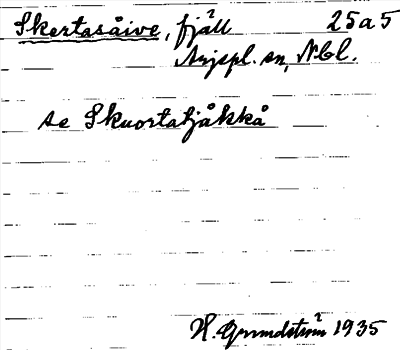 Skertasåive, fjäll 25a5
Arjspl. sn, Nbl.
se Skuortatjåkkå
H. Grundström 1935